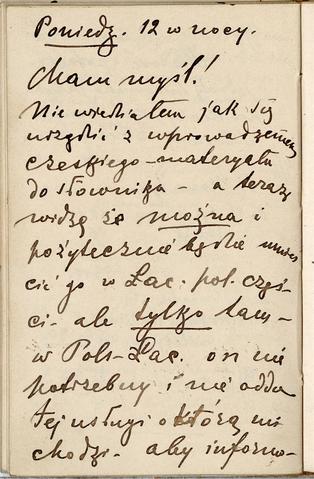 Poniedz. 12 w nocy.
Mam myśl!
Nie wiedziałem jak się
urządzić z wprowadzeniem
czeskiego materyału
do słownika – a teraz
widzę że można i
pożytecznie będzie umieś
cić go w Łac. pol. częś-
ci- ale tylko tam –
w Pols-Łac. on nie
potrzebny i nie odda
tej usługi o którą mi
chodzi- aby informo-